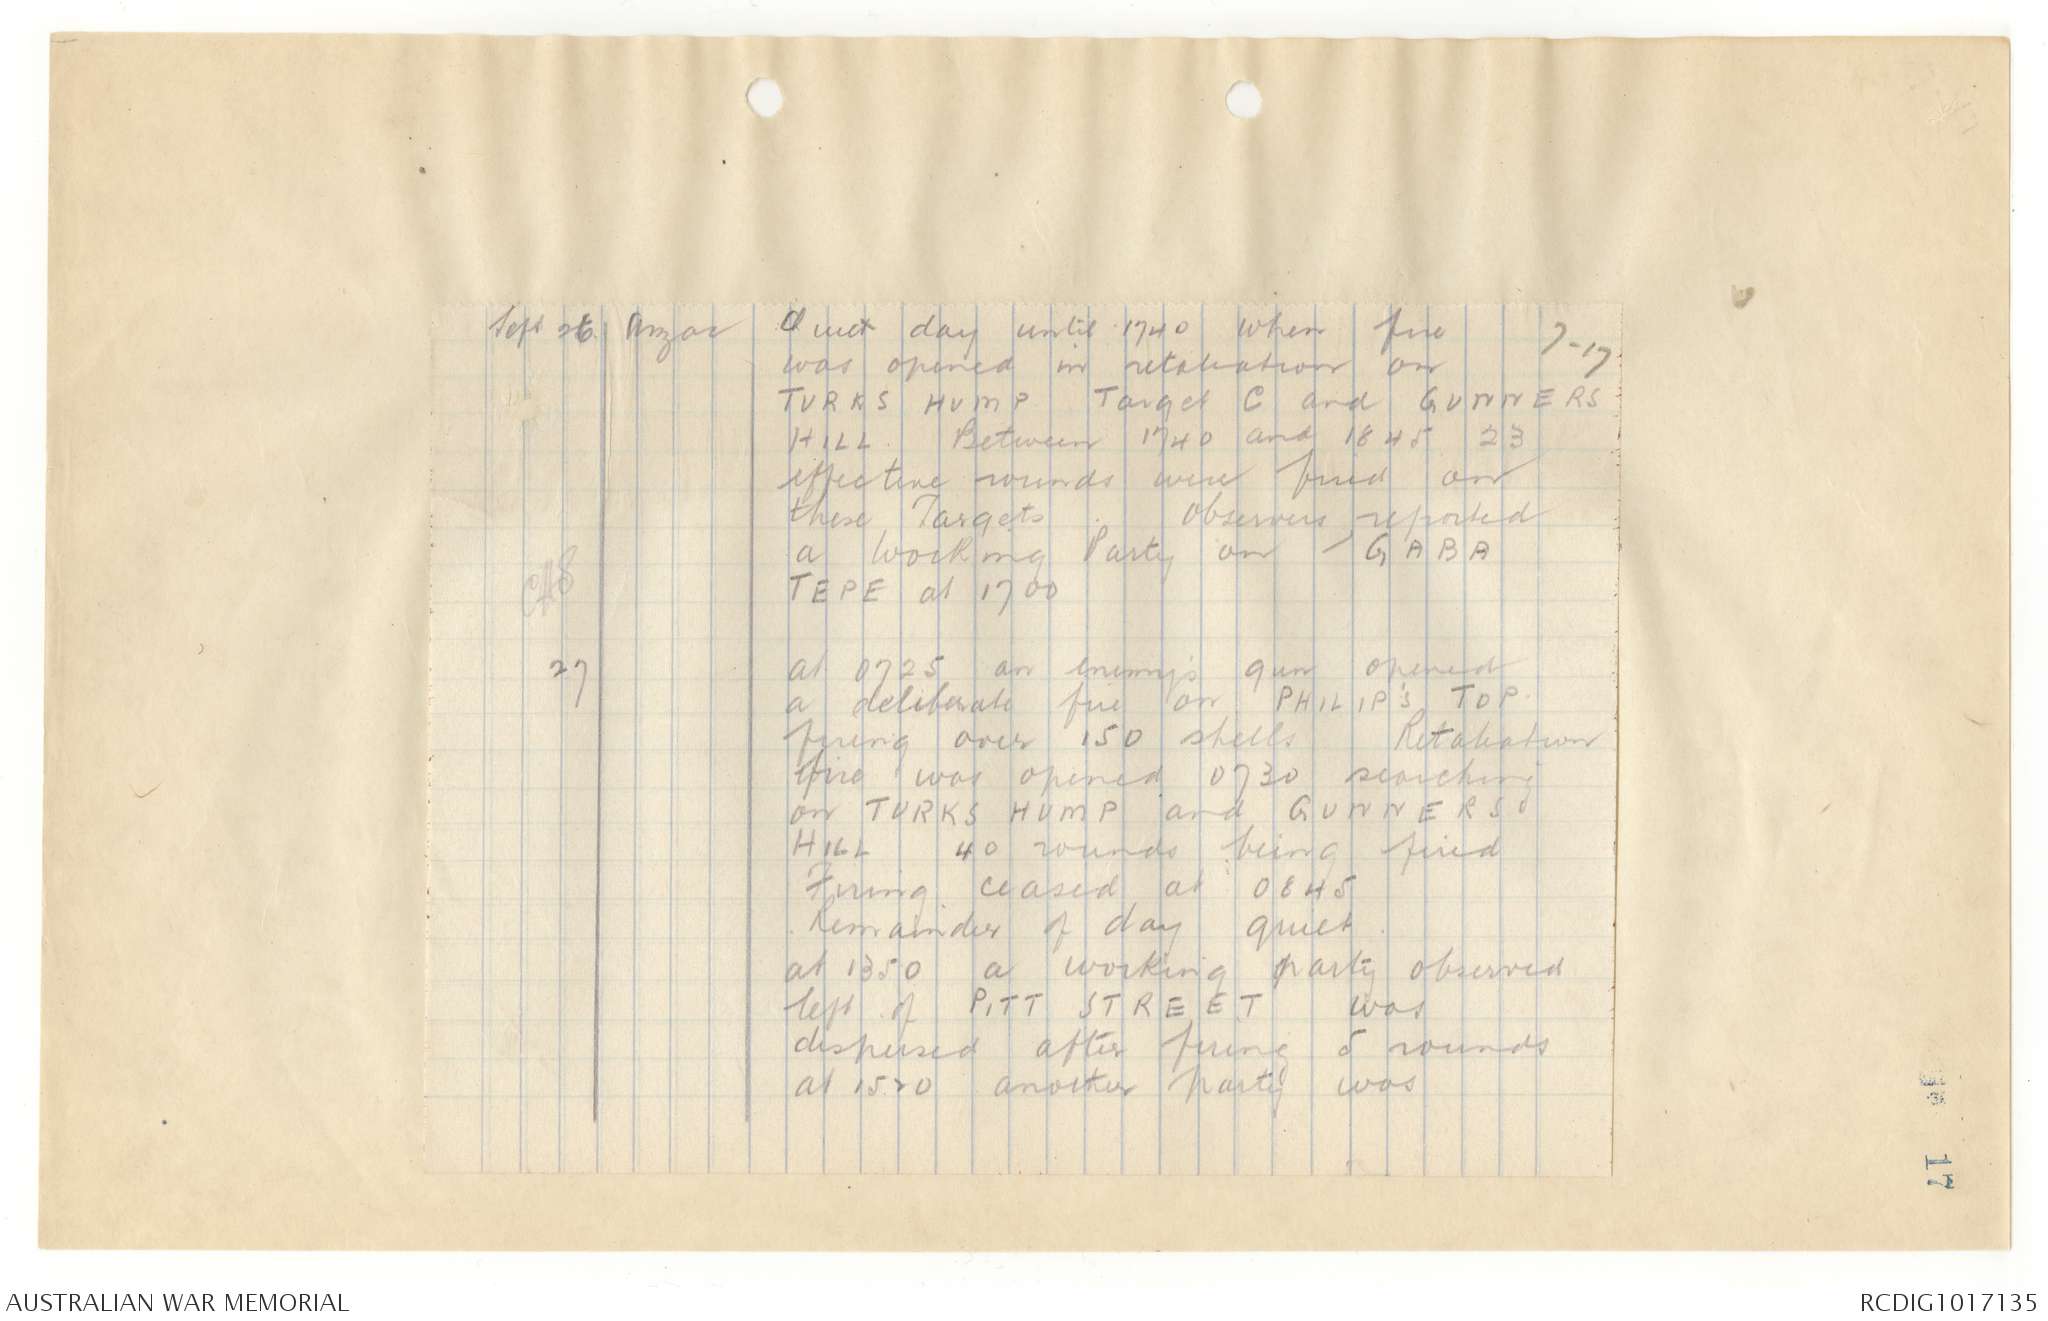 Sept 26. Anzac Quiet day until 1740 when fire 7-17
was opened in retaliation on
TURKS HUMP Target C and GUNNERS
HILL. Between 1740 and 1845 23
effective rounds were fired on
these Targets. Observers reported
a Working Party on GABA
TEPE at 1700
27 at 0725 an enemy's gun opened
a deliberate fire on PHILIP'S TOP.
firing over 150 shells Retaliation
fire was opened 0730 searching
on TURKS HUMP and GUNNERS
HILL 40 rounds being fired
Firing ceased at 0845
Remainder of day quiet.
at 1350 a working party observed
left of PITT STREET was
dispersed after firing 5 rounds
at 1520 another party was
17
AUSTRALIAN WAR MEMORIAL
RCDIG1017135